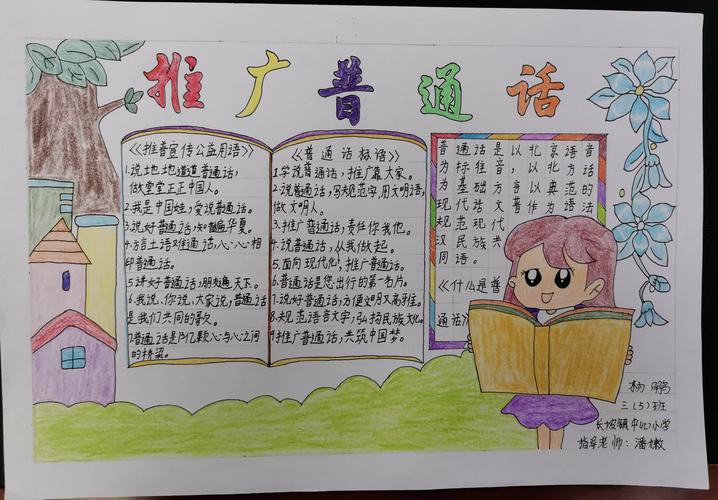 推广普通话
《推普宣传公益用语》
1.说地地道道普通话,
做堂堂正正中国人。
2.我是中国娃,爱说普通话。
3.说好普通话,知音遍华夏。
4.方言土语难通话,心心相
印普通话。
5.讲好普通话,朋友遍天下。
6.我说,你说,大家说,普通话
是我们共同的歌。
7.普通话是13亿颗心与心之间
的桥梁。
《普通话标语》
1.学说普通话,推广靠大家。
2.说普通话,写规范字,用文明语,
做文明人。
3.推广普通话,责任你我他。
4.说普通话,从我做起。
5.面向现代化,推广普通话。
6.普通话是您出行的第一名片。
7.说好普通话,方便文明又高雅。
8.规范语言文字,弘扬民族文化。
9推广普通话,共筑中国梦。
普通话是以北京语音
为标准音,以北方话
为基础方言以典范的
现代活文普作为语法
规范现代
汉民族共
同语。
《什么是普
通话》
杨鹏
三(5)班
长坡镇中心小学
指导老师:潘嫩